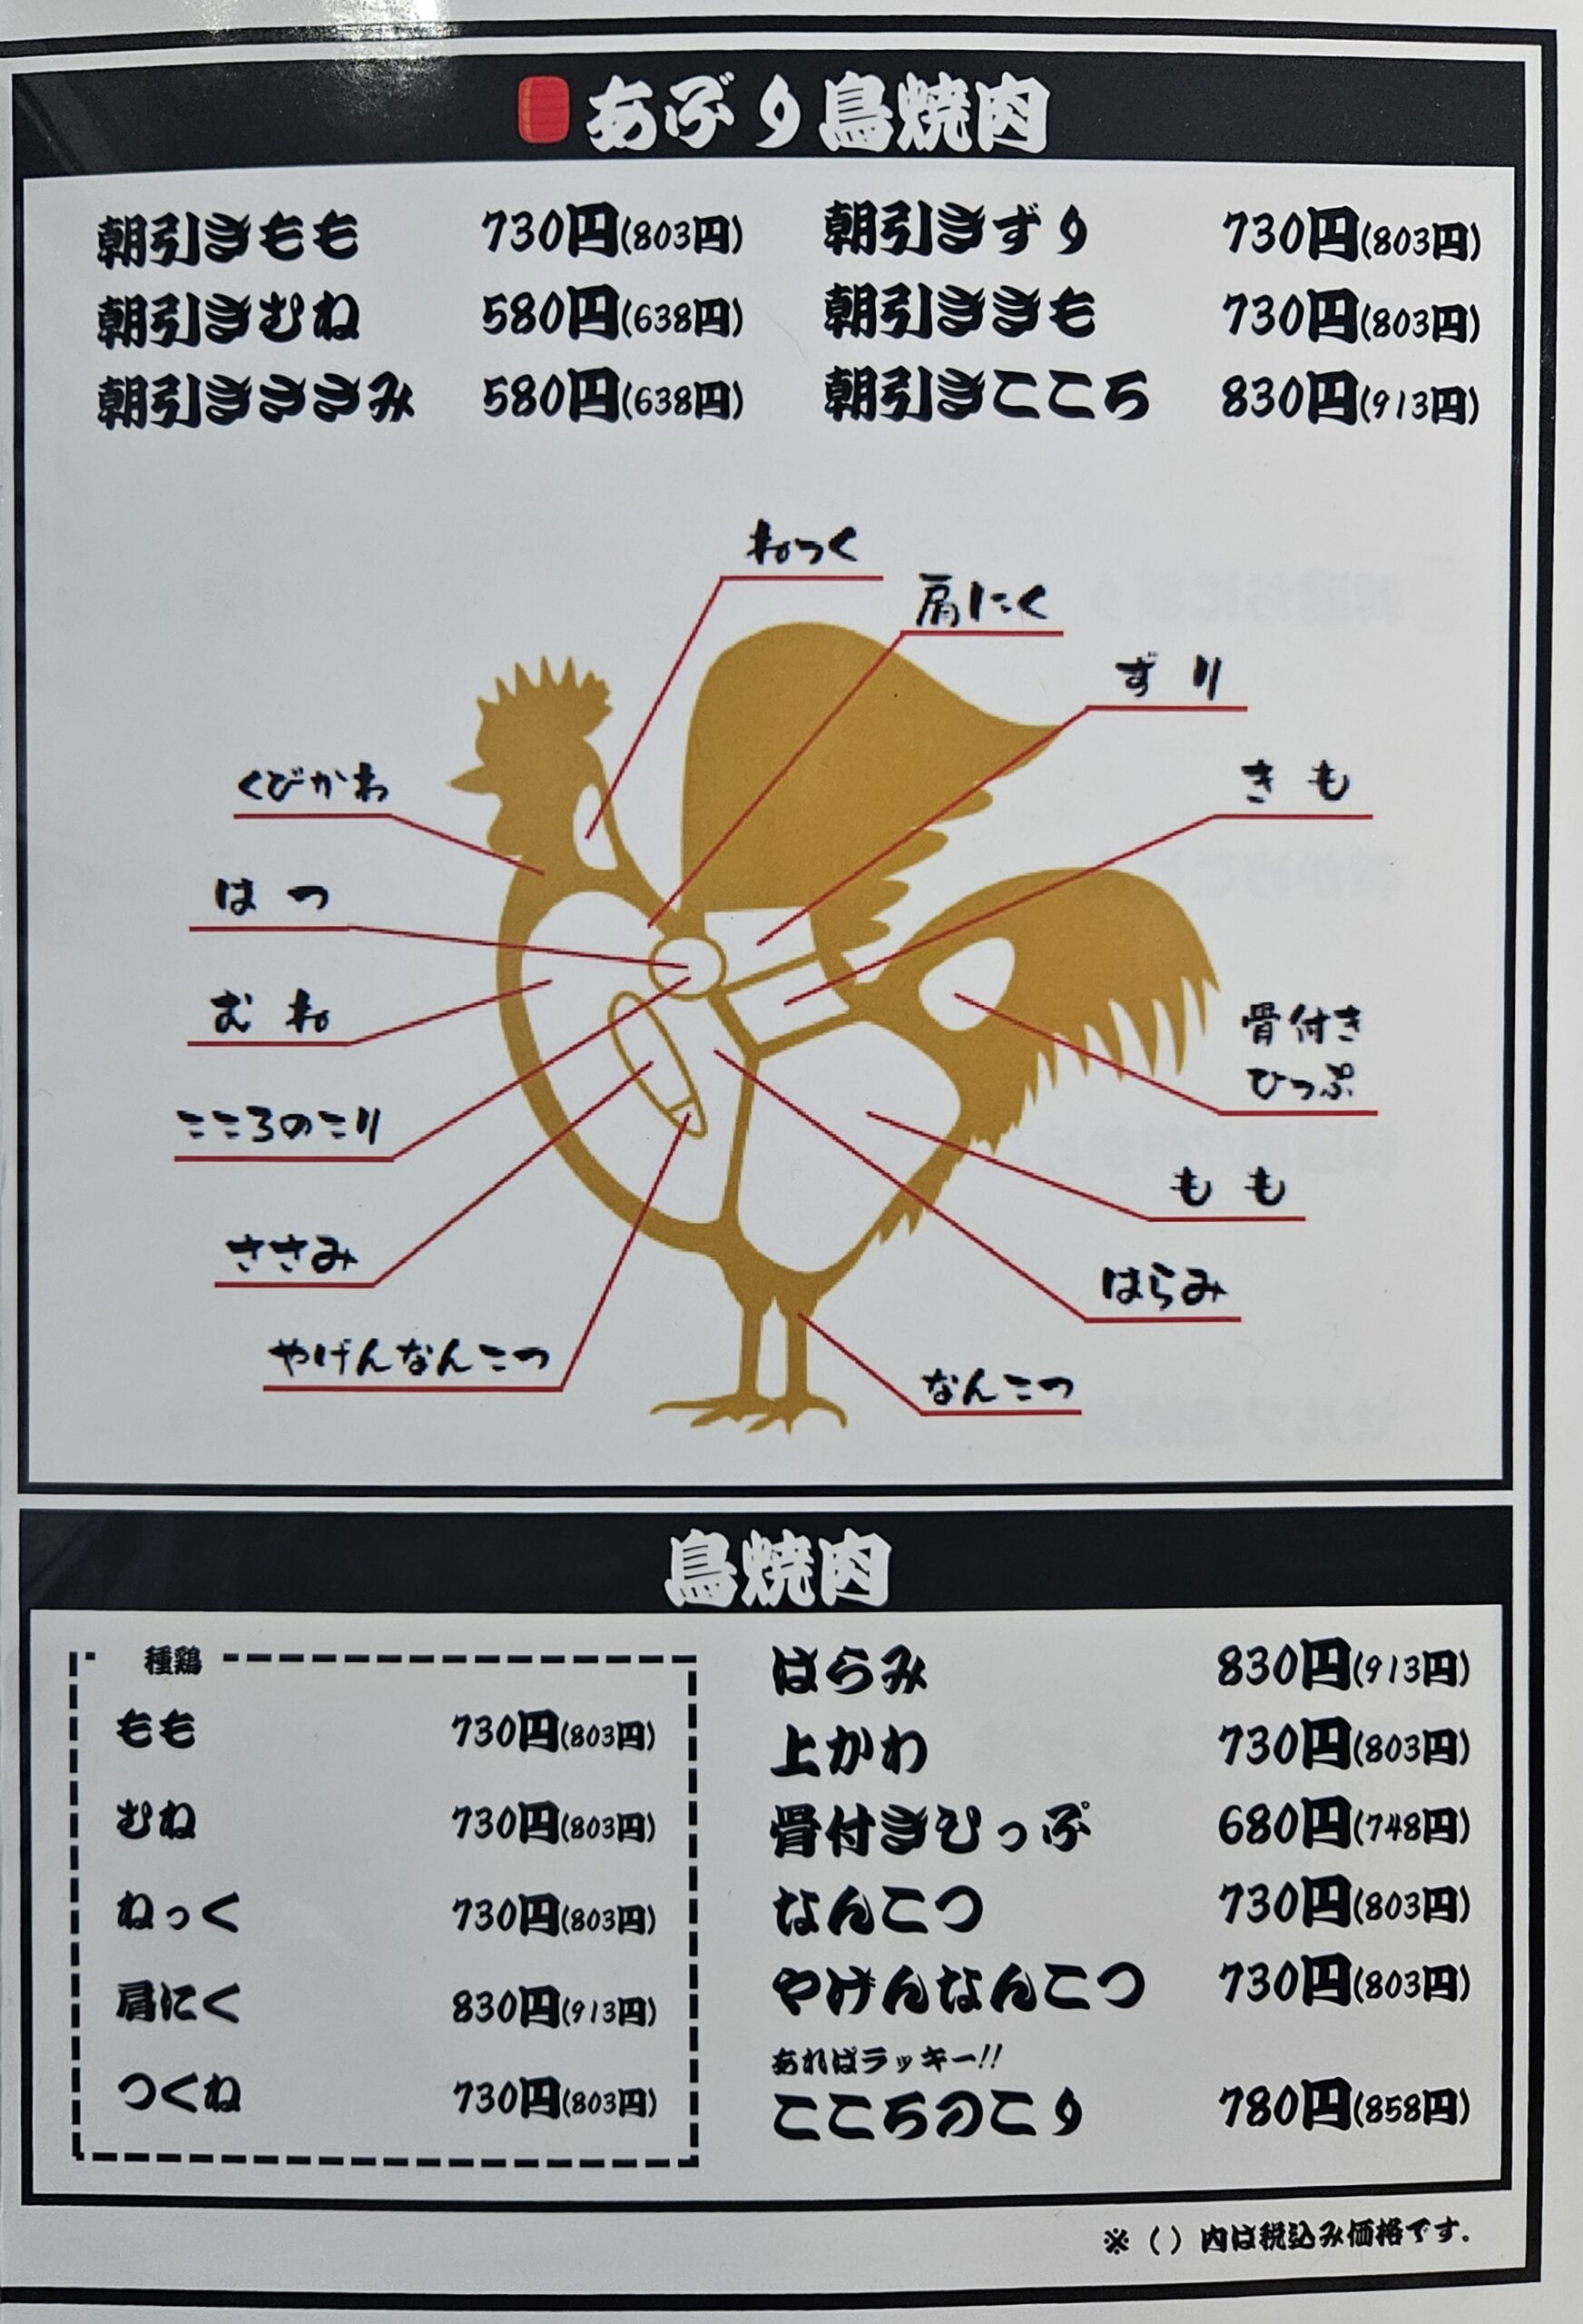 あぶり鳥焼肉
朝引きもも 730円(803円) 朝引きずり 730円(803円)
朝引きむね 580円(638円) 朝引ききも 730円(803円)
朝引きささみ 580円(638円) 朝引きこころ 830円(913円)
ねっく
肩にく
ずり
きも
くびかわ
はつ
むね
骨付き
ひっぷ
こころのこり
もも
ささみ
はらみ
やげんなんこつ
なんこつ
鳥焼肉
種鶏
もも 730円(803円)
むね 730円(803円)
ねっく 730円(803円)
肩にく 830円(913円)
つくね 730円(803円)
はらみ 830円(913円)
上かわ 730円(803円)
骨付きひっぷ 680円(748円)
なんこつ 730円(803円)
やげんなんこつ 730円(803円)
あればラッキー!!
こころのこり 780円(858円)
※（）内は税込み価格です.